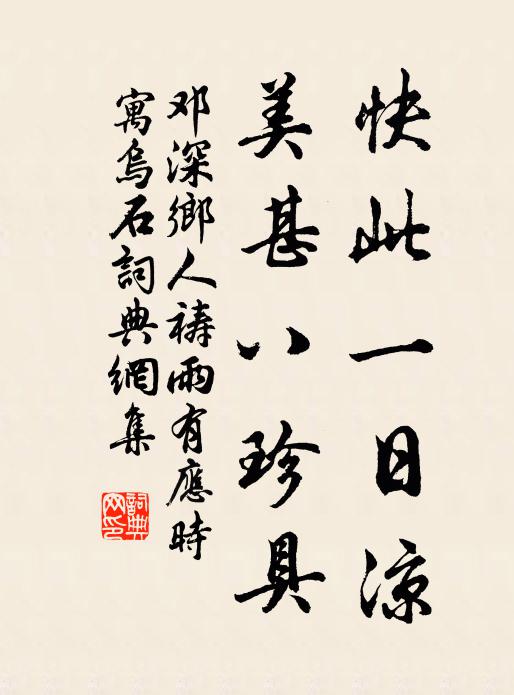 快此一日涼
美甚八珍具
邓深鄉人禱雨有應時
寓烏石詞典網集
詞典
网印